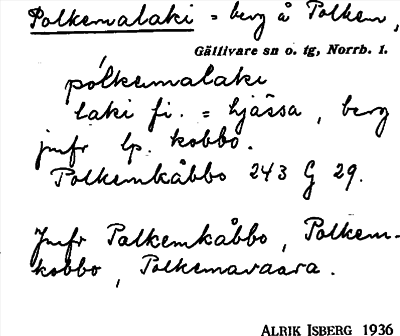 Polkemalaki = berg å Polkem,
Gällivare sn o. tg, Norrb. l.
pólkemalaki
laki fi. = hjässa, berg
jmfr lp. kobbo.
Polkemkåbbo 243 G 29.
Jmfr Palkemkåbbo, Polkem-
kobbo, Polkemavaara.
ALRIK ISBERG 1936